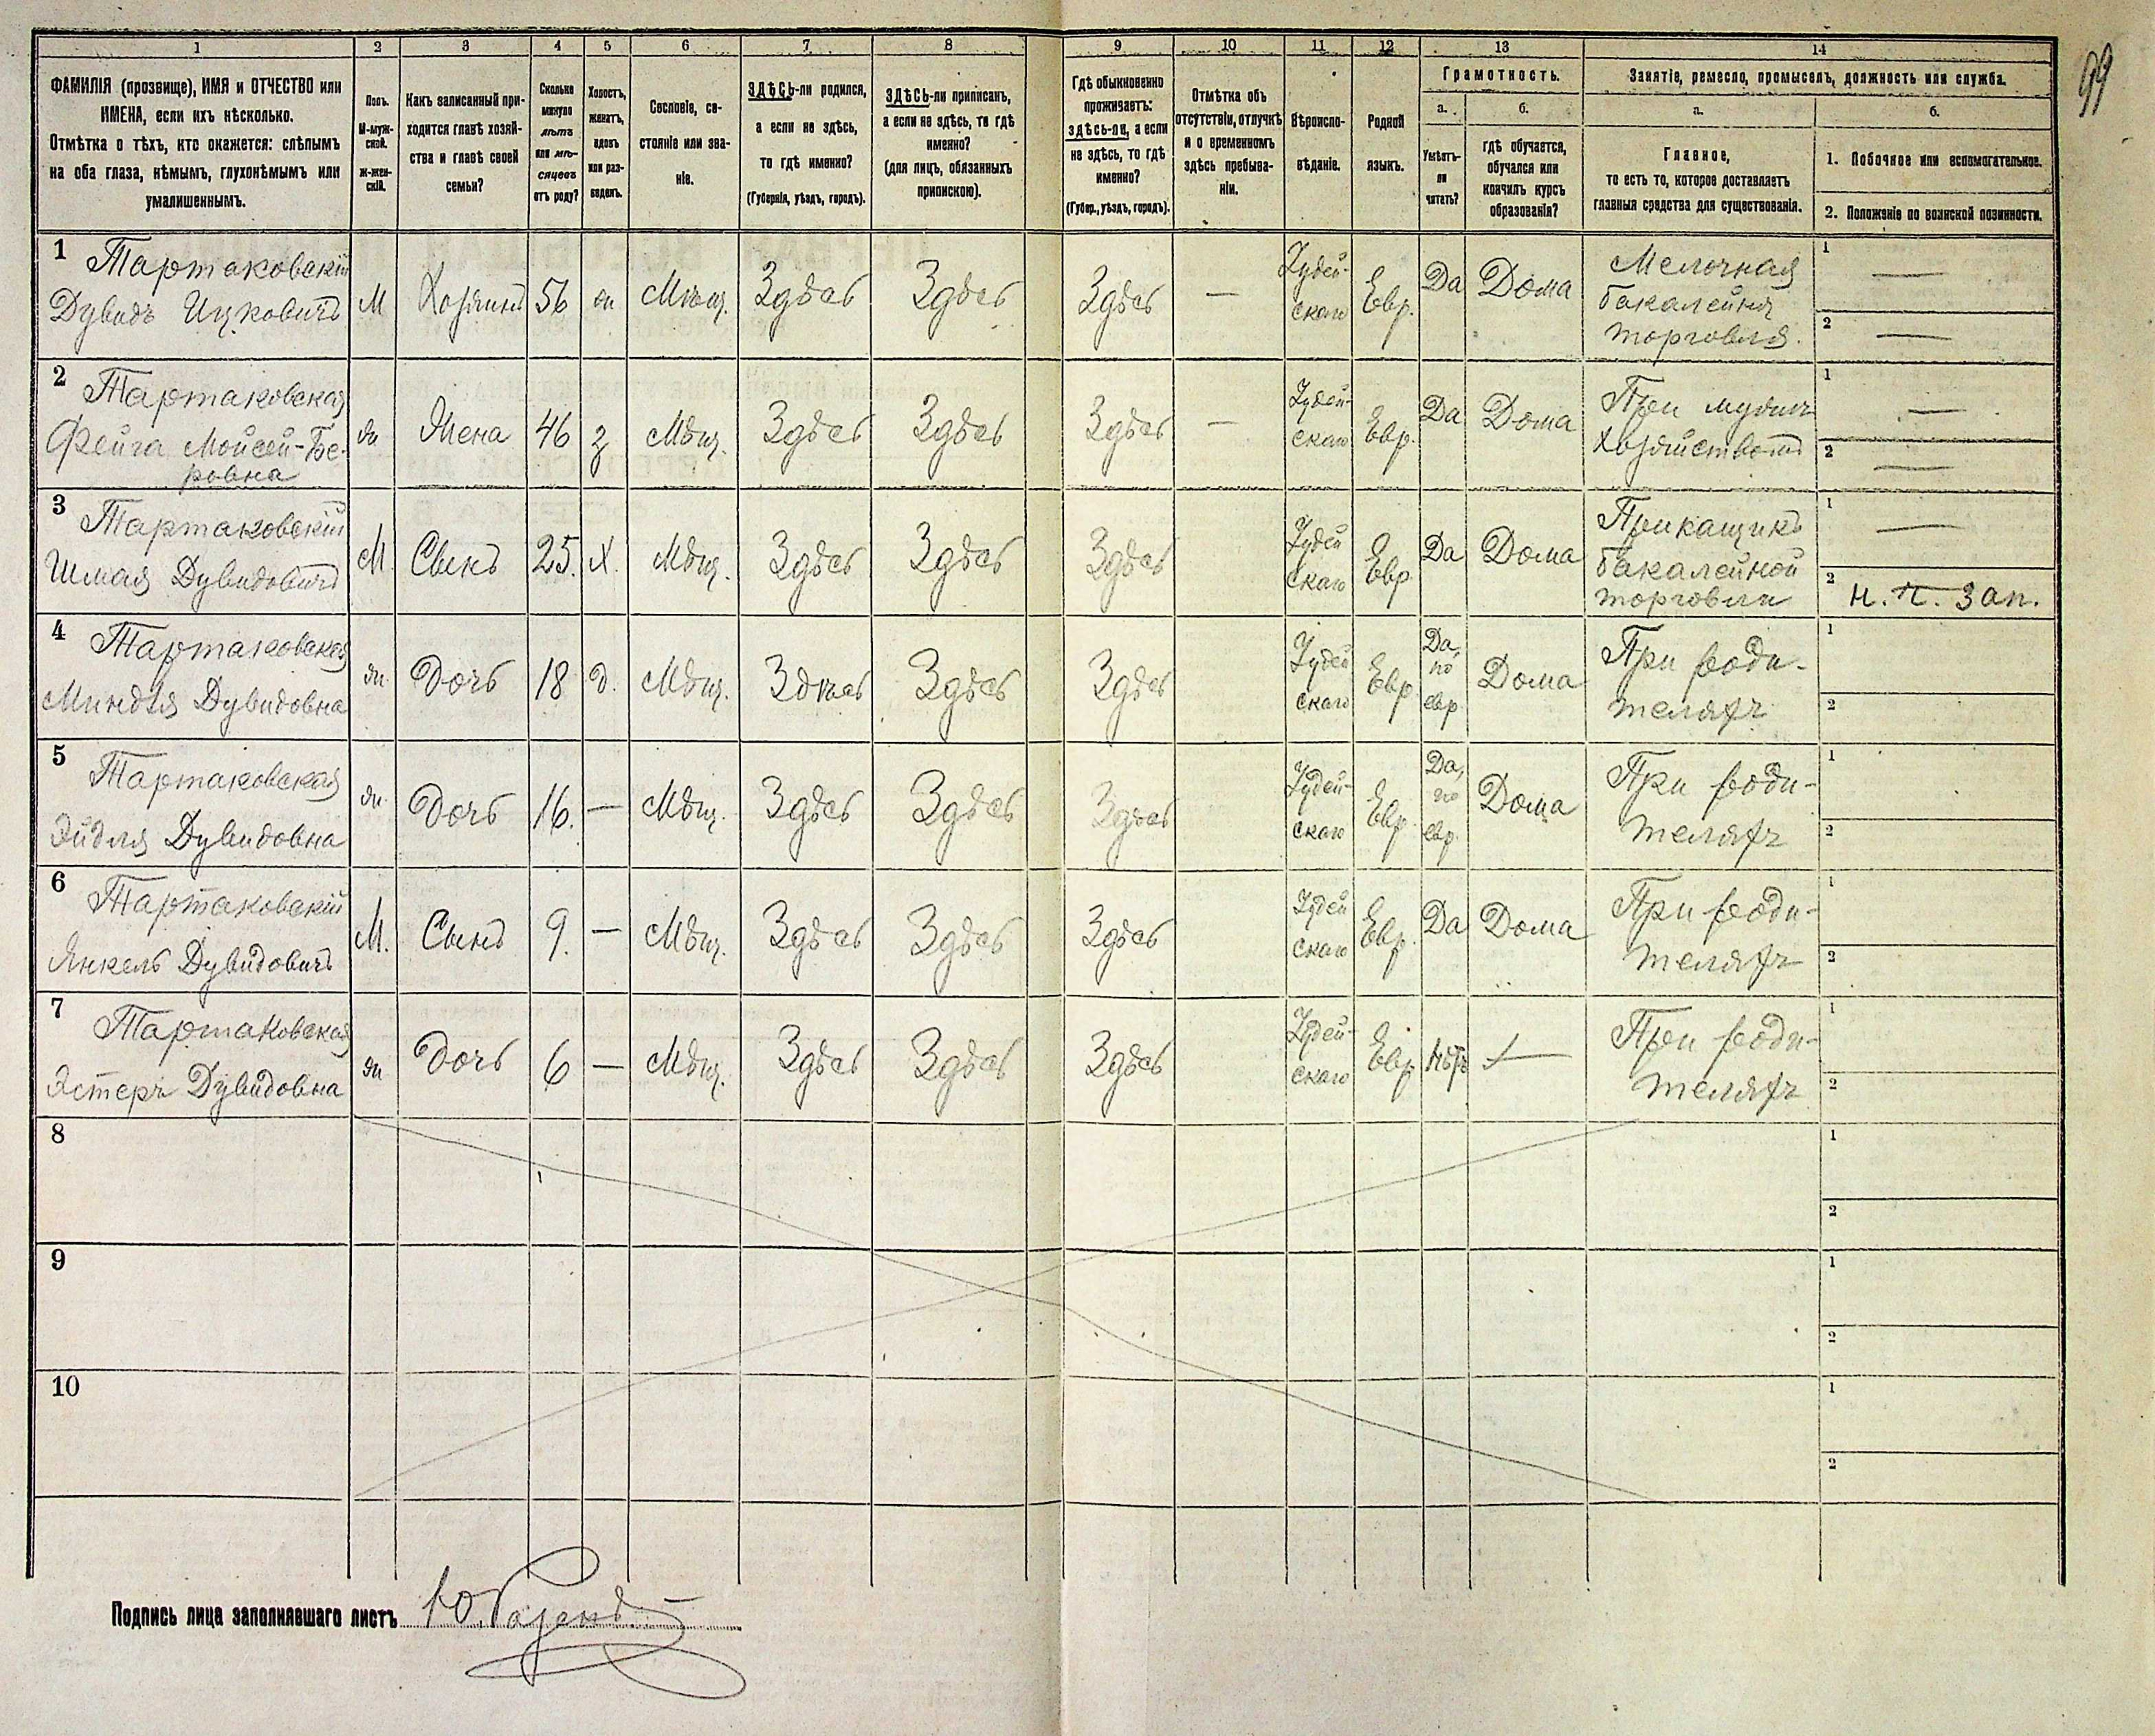 99
1 2 3 4 5 6 7 8 9 10 11 12 13 14
ФАМИЛІЯ (прозвище), ИМЯ и ОТЧЕСТВО или
ИМЕНА, если ихъ нѣсколько.
Отмѣтка о тѣхъ, кто окажется: слѣпымъ
на оба глаза, нѣмымъ, глухонѣмымъ или
умалишеннымъ.
Полъ.
М-муж-
ской.
ж-жен-
скій.
Какъ записанный при-
ходится главѣ хозяй-
ства и главѣ своей
семьи?
Сколько
минуло
лѣтъ
или мѣ-
сяцевъ
отъ роду?
Холостъ,
женатъ,
вдовъ
или раз-
веденъ.
Сословіе, со-
стояніе или зва-
ніе.
ЗДѢСЬ-ли родился,
а если не здѣсь,
то гдѣ именно?
(Губернія, уѣздъ, городъ).
ЗДѢСЬ-ли приписанъ,
а если не здѣсь, то гдѣ
именно?
(для лицъ, обязанныхъ
припискою).
Гдѣ обыкновенно
проживаетъ:
здѣсь-ли, а если
не здѣсь, то гдѣ
именно?
(Губер., уѣздъ, городъ).
Отмѣтка объ
отсутствіи, отлучкѣ
и о временномъ
здѣсь пребыва-
ніи.
Вѣроиспо-
вѣданіе.
Родной
языкъ.
Грамотность.
а. б.
Умѣетъ-
ли
читать?
гдѣ обучается,
обучался или
кончилъ курсъ
образованія?
Занятіе, ремесло, промыселъ, должность или служба.
а. б.
Главное,
то есть то, которое доставляетъ
главныя средства для существованія.
1. Побочное или вспомогательное.
2. Положеніе по воинской повинности.
1 Тартаковскій
Дувидъ Ицковичъ М Хозяинъ 56 ж Мѣщ. Здѣсь Здѣсь Здѣсь — Іудей-
скаго Евр. Да Дома Мелочная
бакалейная
торговля.
1 —
2 —
2 Тартаковская
Фейга Мойсей-Бе-
ровна ж Жена 46 з Мѣщ. Здѣсь Здѣсь Здѣсь — Іудей-
скаго Евр. Да Дома При мужѣ
хозяйством
1 —
2 —
3 Тартаковскій
Шмая Дувидовичъ М. Сынъ 25. х. Мѣщ. Здѣсь Здѣсь Здѣсь Іудей
скаго Евр. Да Дома Прикащикъ
бакалейной
торговли
1 —
2 н. ч. зап.
4 Тартаковская
Миндля Дувидовна ж. Дочь 18 д. Мѣщ. Здѣсь Здѣсь Здѣсь Іудей
скаго Евр. Да,
по
евр. Дома При роди-
теляхъ
1
2
5 Тартаковская
Эйдля Дувидовна ж. Дочь 16. — Мѣщ. Здѣсь Здѣсь Здѣсь Іудей-
скаго Евр. Да,
по
евр. Дома При роди-
теляхъ
1
2
6 Тартаковскій
Янкель Дувидовичъ М. Сынъ 9. — Мѣщ. Здѣсь Здѣсь Здѣсь Іудей
скаго Евр. Да Дома При роди-
теляхъ
1
2
7 Тартаковская
Эстеръ Дувидовна ж Дочь 6 — Мѣщ. Здѣсь Здѣсь Здѣсь Іудей-
скаго Евр. Нѣтъ — При роди-
теляхъ
1
2
8
1
2
9
1
2
10
1
2
Подпись лица заполнявшаго листъ